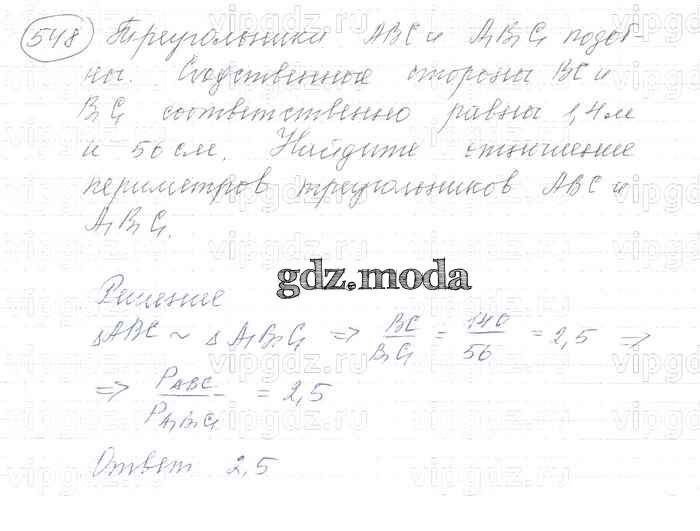 548 Треугольники ABC и A₁B₁C₁ подоб-
ны. Сходственные стороны BC и
B₁C₁ соответственно равны 1,4 м
и 56 см. Найдите отношение
периметров треугольников ABC и
A₁B₁C₁.
gdz.moda
Решение
△ABC ~ △A₁B₁C₁ => BC/B₁C₁ = 140/56 = 2,5 =>
=> P_ABC/P_A₁B₁C₁ = 2,5
Ответ 2,5